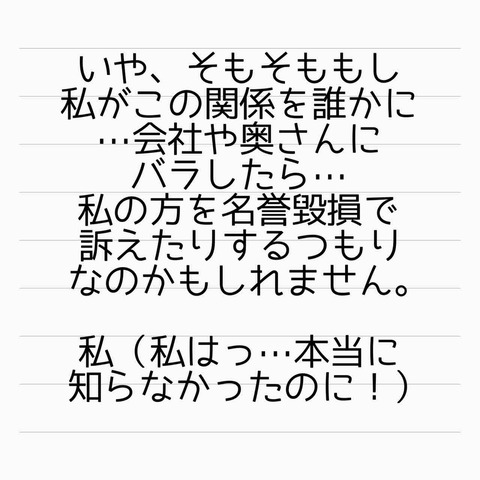 いや、そもそももし
私がこの関係を誰かに
…会社や奥さんに
バラしたら…
私の方を名誉毀損で
訴えたりするつもり
なのかもしれません。
私（私はっ…本当に
知らなかったのに！）